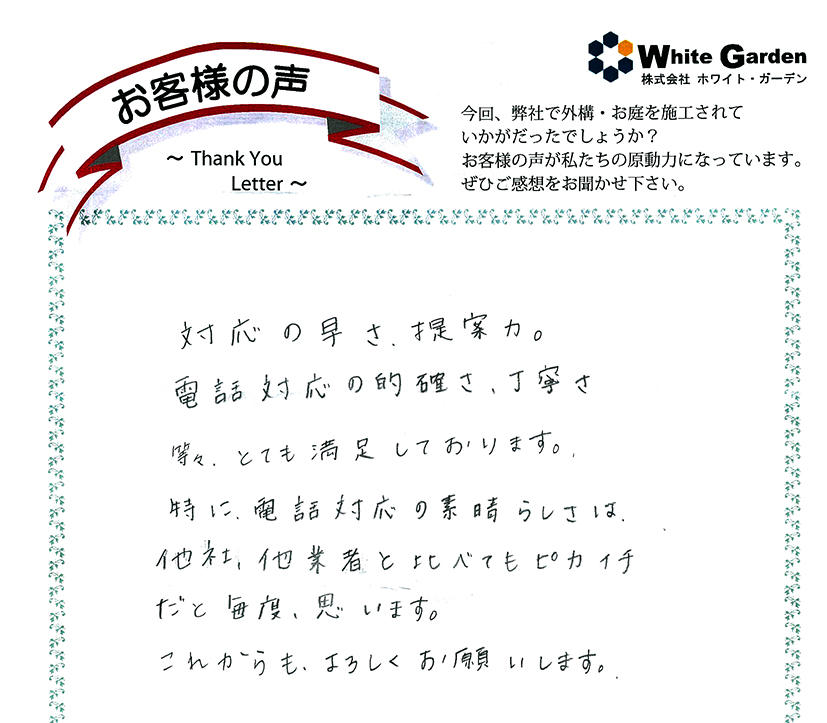 お客様の声
～ Thank You
Letter ～
White Garden
株式会社 ホワイト・ガーデン
今回、弊社で外構・お庭を施工されて
いかがだったでしょうか？
お客様の声が私たちの原動力になっています。
ぜひご感想をお聞かせ下さい。
対応の早さ、提案力。
電話対応の的確さ、丁寧さ
等々、とても満足しております。
特に、電話対応の素晴らしさは、
他社、他業者と比べてもピカイチ
だと毎度、思います。
これからも、よろしくお願いします。